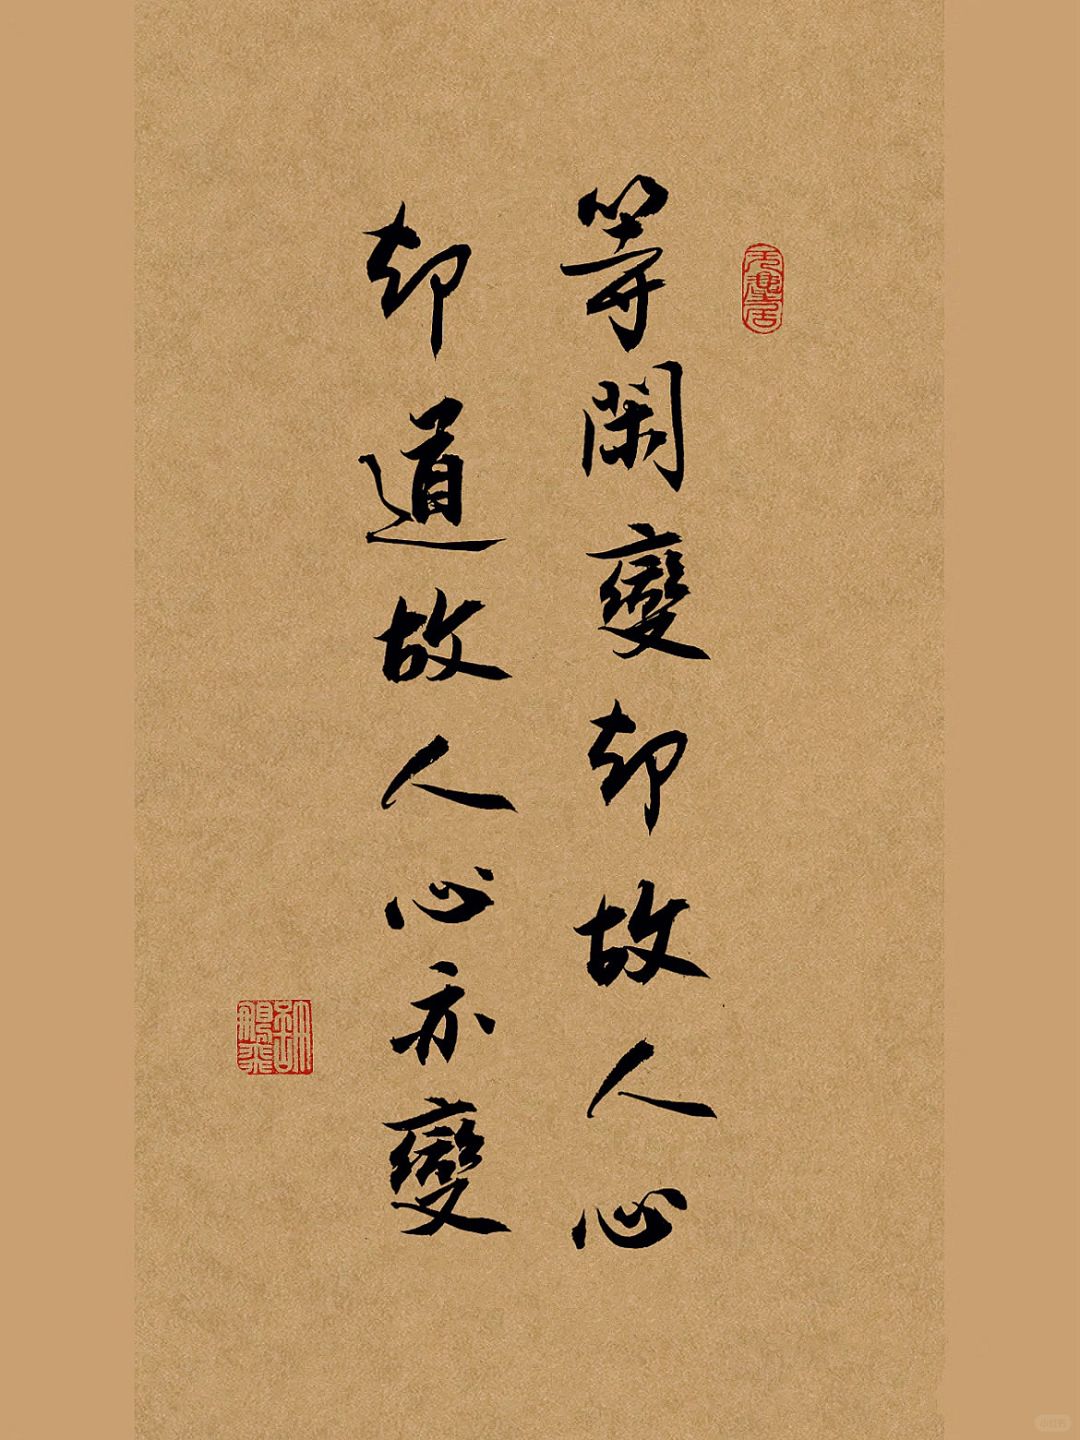 等閑變却故人心
却道故人心亦變